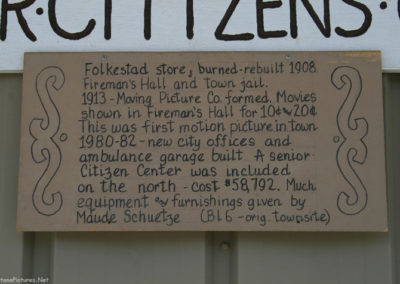 R. CITIZENS
Folkestad store, burned-rebuilt 1908
Fireman's Hall and town jail.
1913-Moving Picture Co. formed. Movies
shown in Fireman's Hall for 10¢ & 20¢
This was first motion picture in town
1980-82-new city offices and
ambulance garage built A senior
Citizen Center was included
on the north-cost $58,792. Much
equipment & furnishings given by
Maude Schuetze (Bl 6-orig. townsite)
tanaPictures.Net